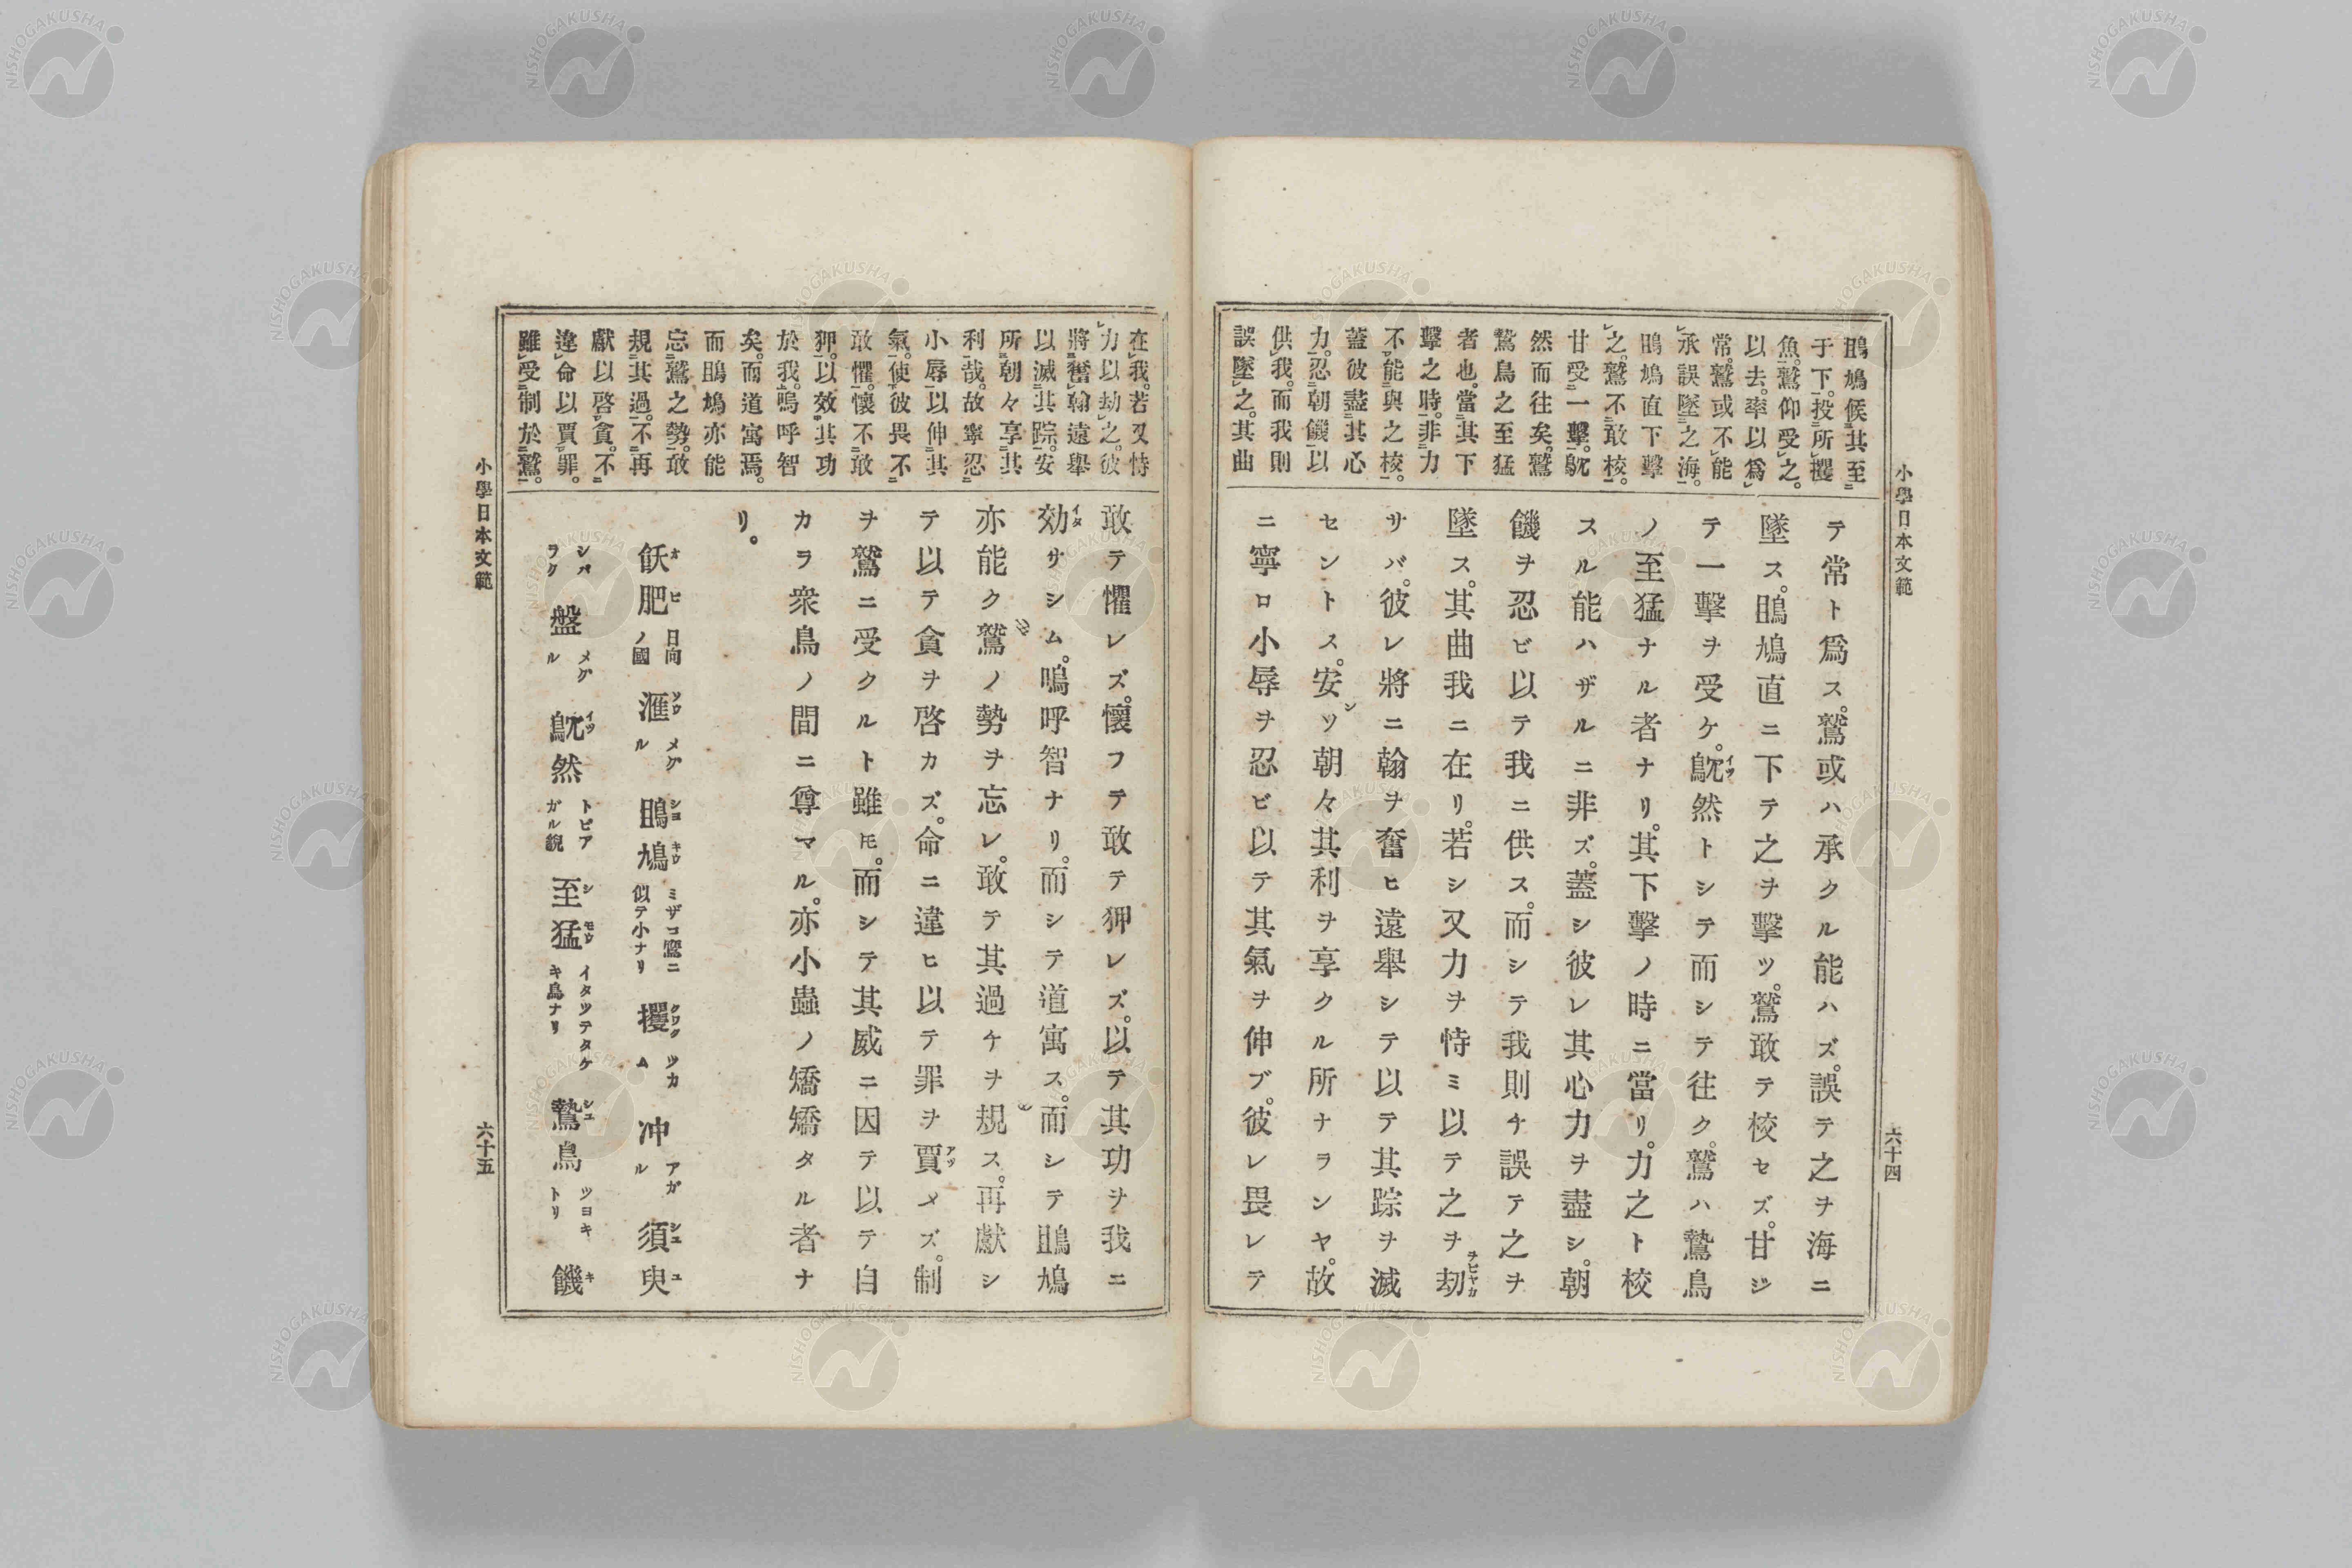 小學日本文範
六十四
鴡鳩候其至
于下。投所攫
魚。鷲仰受之。
以去。率以爲
常。鷲或不能
承誤墜之海。
鴡鳩直下擊
之。鷲不敢校。
甘受一擊。鴥
然而往矣。鷲
鷙鳥之至猛
者也。當其下
擊之時。非力
不能與之校。
蓋彼盡其心
力。忍朝饑以
供我。而我則
誤墜之。其曲
テ常ト爲ス。鷲或ハ承クル能ハズ。誤テ之ヲ海ニ
墜ス。鴡鳩直ニ下テ之ヲ擊ツ。鷲敢テ校セズ。甘ジ
テ一擊ヲ受ケ。鴥然トシテ而シテ往ク。鷲ハ鷙鳥
ノ至猛ナル者ナリ。其下擊ノ時ニ當リ。力之ト校
スル能ハザルニ非ズ。蓋シ彼レ其心力ヲ盡シ。朝
饑ヲ忍ビ以テ我ニ供ス。而シテ我則チ誤テ之ヲ
墜ス。其曲我ニ在リ。若シ又力ヲ恃ミ以テ之ヲ劫
サバ。彼レ將ニ翰ヲ奮ヒ遠舉シテ以テ其踪ヲ滅
セントス。安ソ朝々其利ヲ享クル所ナランヤ。故
ニ寧ロ小辱ヲ忍ビ以テ其氣ヲ伸ブ。彼レ畏レテ
在我。若又恃
力以劫之。彼
將奮翰遠舉
以滅其踪。安
所朝々享其
利哉。故寧忍
小辱以伸其
氣。使彼畏不
敢懼。懷不敢
狎。以效其功
於我。嗚呼智
矣。而道寓焉。
而鴡鳩亦能
忘鷲之勢。敢
規其過。不再
獻以啓貪。不
違命以賈罪。
雖受制於鷲。
敢テ懼レズ。懷フテ敢テ狎レズ。以テ其功ヲ我ニ
効サシム。嗚呼智ナリ。而シテ道寓ス。而シテ鴡鳩
亦能ク鷲ノ勢ヲ忘レ。敢テ其過ケヲ規ス。再獻シ
テ以テ貪ヲ啓カズ。命ニ違ヒ以テ罪ヲ賈メズ。制
ヲ鷲ニ受クルト雖モ。而シテ其威ニ因テ以テ自
カラ衆鳥ノ間ニ尊マル。亦小蟲ノ矯矯タル者ナ
リ。
飫肥 日向ノ國 滙 メグル 鴡鳩 ミザコ鷹ニ似テ小ナリ 攫 ツカム 冲 アガル 須臾
シバラク 盤 メグル 鴥然 トビアガル貌 至猛 イタツテタケキ鳥ナリ 鷙鳥 ツヨキトリ 饑
小學日本文範
六十五